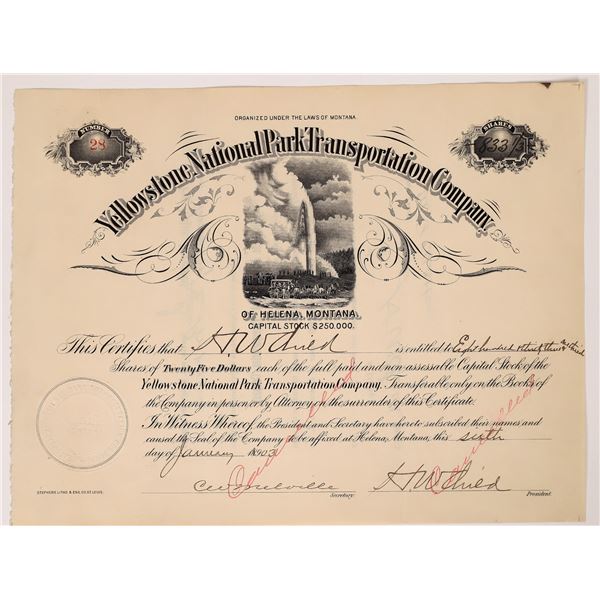 ORGANIZED UNDER THE LAWS OF MONTANA
NUMBER
28
SHARES
833 1/3
Yellowstone National Park Transportation Company
OF HELENA, MONTANA.
CAPITAL STOCK $250.000.
This Certifies that H W Child is entitled to Eight hundred thirty three & one third
Shares of Twenty Five Dollars each of the full paid and non-assessable Capital Stock of the
Yellowstone National Park Transportation Company. Transferable only on the Books of
the Company in person or by Attorney on the surrender of this Certificate.
In Witness Whereof the President and Secretary have hereto subscribed their names and
caused the Seal of the Company to be affixed at Helena, Montana, this sixth
day of January 1903
Cancelled
Cancelled
H W Child
Secretary.
President.
STEPHENS LITHO. & ENG. CO. ST. LOUIS.